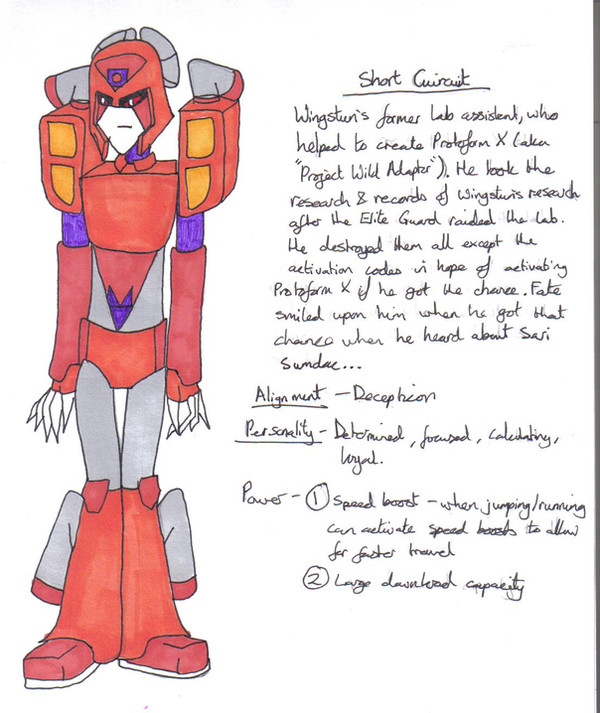 Short Cuircuit
Wingstun's former Lab assistent, who
helped to create Protoform X (aka
"Project Wild Adapter"). He took the
research & records of Wingstun's research
after the Elite Guard raided the lab.
He destroyed them all except the
activation codes in hope of activating
Protoform X if he got the chance. Fate
smiled upon him when he got that
chance when he heard about Sari
Sumdac...
Alignment - Decepticon
Personality - Determined, focused, calculating,
loyal.
Power - ① Speed boost - when jumping/running
can activate speed boosts to allow
for faster travel
② Large download capacity